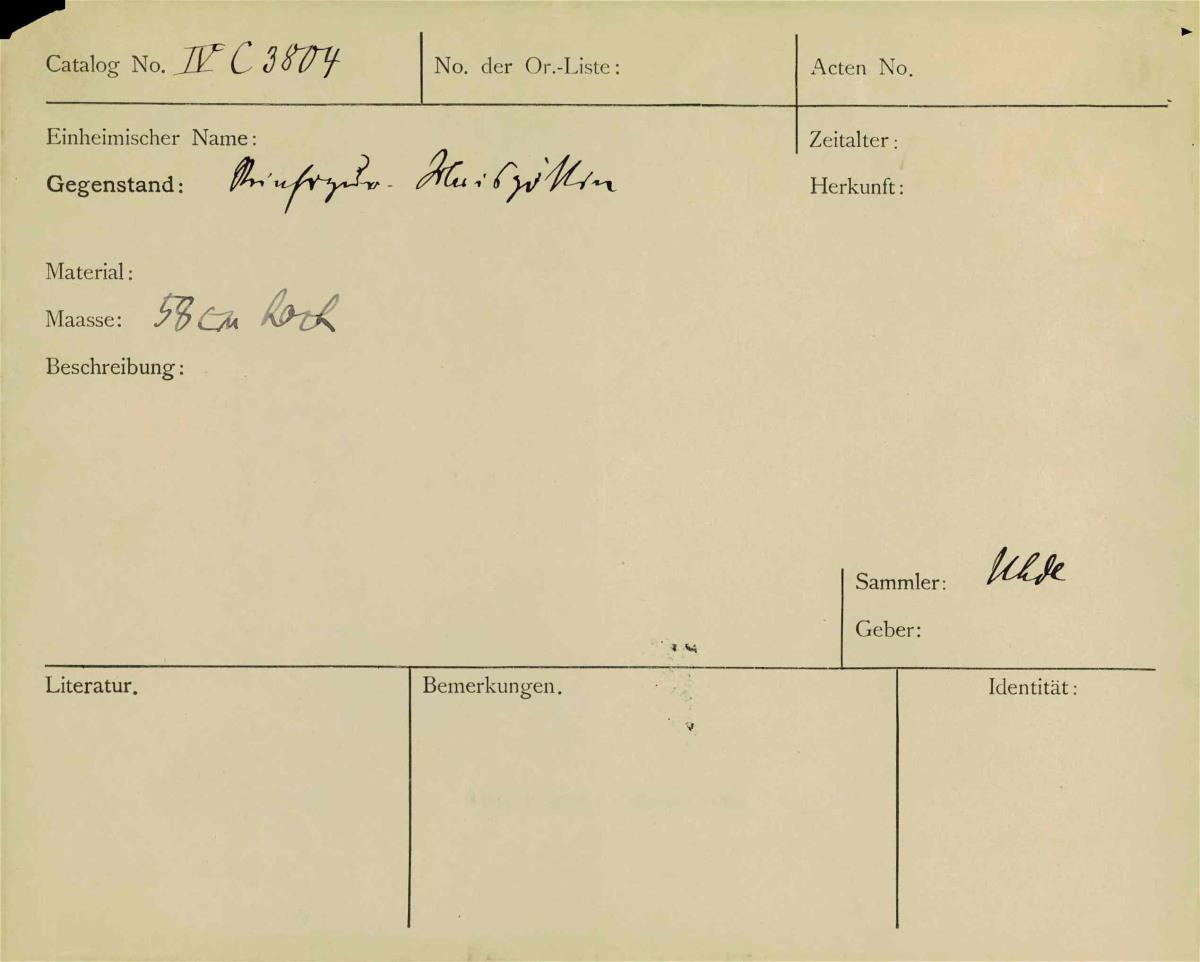 Catalog No. IV C 3804
No. der Or.-Liste:
Acten No.
Einheimischer Name:
Zeitalter:
Gegenstand: Steinfigur. Maisgöttin
Herkunft:
Material:
Maasse: 58 cm hoch
Beschreibung:
Sammler: Uhde
Geber:
Literatur.
Bemerkungen.
Identität: